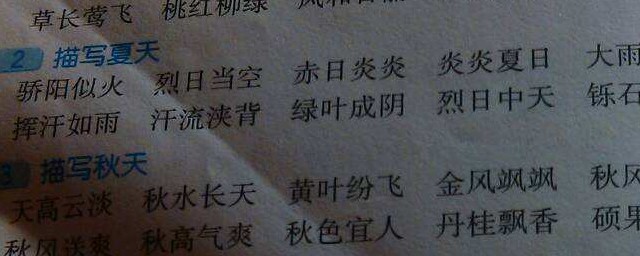 草长莺飞 桃红柳绿
2 描写夏天
骄阳似火 烈日当空 赤日炎炎 炎炎夏日 大雨
挥汗如雨 汗流浃背 绿叶成阴 烈日中天 铄石
3 描写秋天
天高云淡 秋水长天 黄叶纷飞 金风飒飒 秋风
秋风送爽 秋高气爽 秋色宜人 丹桂飘香 硕果